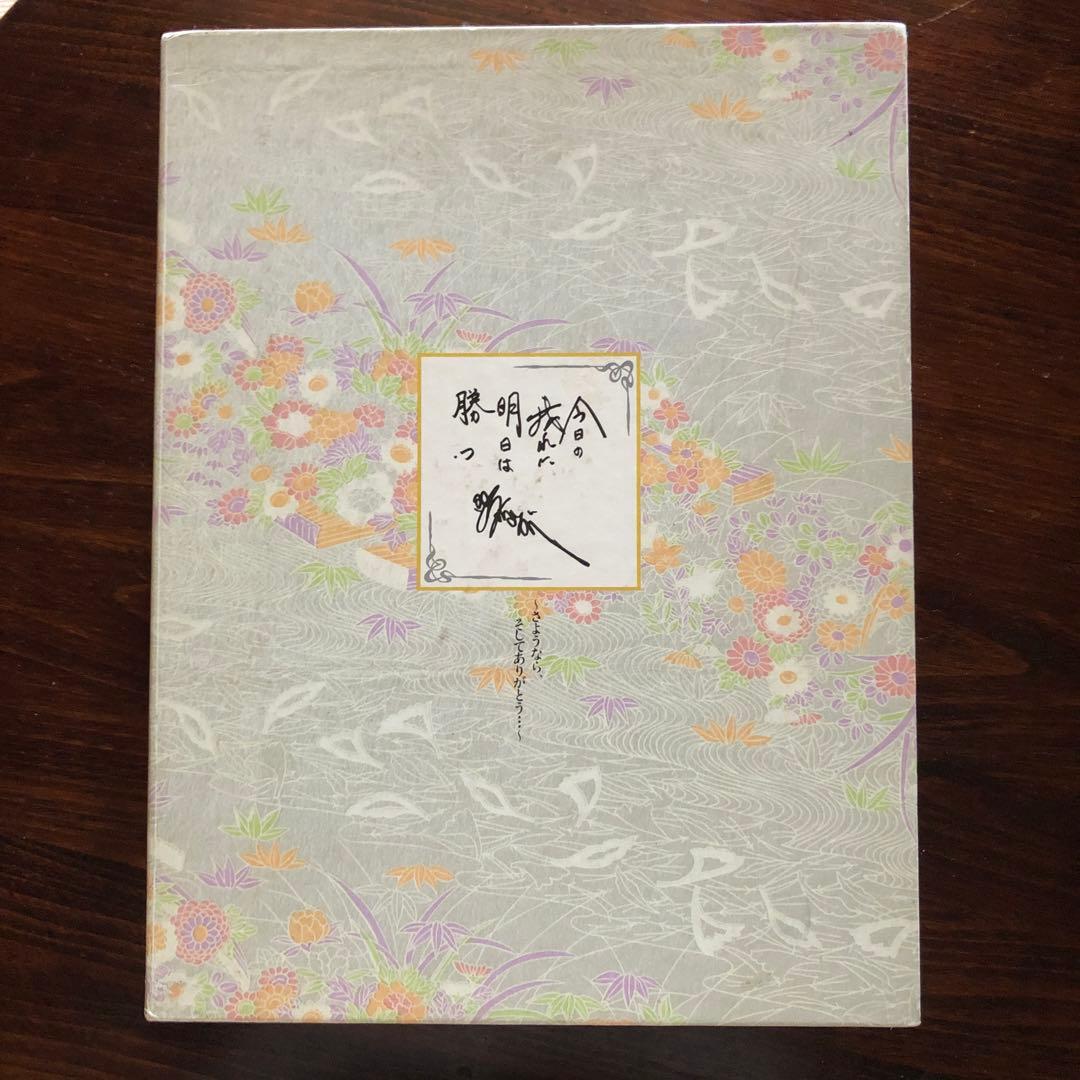 今日の
我れに
明日は
勝つ
~さようなら、
そしてありがとう…~